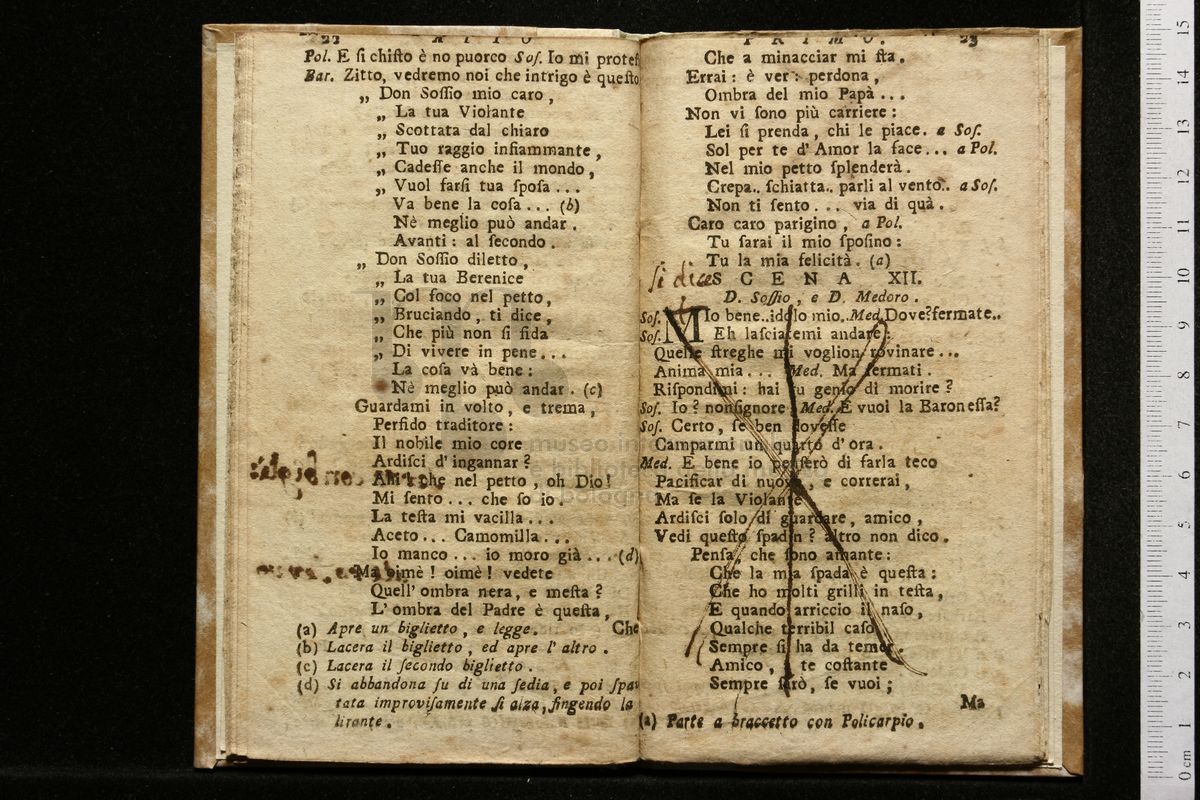 22 ATTO
Pol. E ſi chiſto è no puorco Soſ. Io mi proteſ
Bar. Zitto, vedremo noi che intrigo è queſto
„ Don Soſſio mio caro,
„ La tua Violante
„ Scottata dal chiaro
„ Tuo raggio infiammante,
„ Cadeſſe anche il mondo,
„ Vuol farſi tua ſpoſa...
Va bene la coſa... (b)
Nè meglio può andar.
Avanti: al ſecondo.
„ Don Soſſio diletto,
„ La tua Berenice
„ Col foco nel petto,
„ Bruciando, ti dice,
„ Che più non ſi fida
„ Di vivere in pene...
La coſa và bene:
Nè meglio può andar. (c)
Guardami in volto, e trema,
Perfido traditore:
Il nobile mio core
Ardiſci d'ingannar?
che nel petto, oh Dio!
Mi ſento... che ſo io.
La teſta mi vacilla...
Aceto... Camomilla...
Io manco... io moro già... (d)
Ma oimè! oimè! vedete
Quell' ombra nera, e meſta?
L'ombra del Padre è queſta,
Che
(a) Apre un biglietto, e legge.
(b) Lacera il biglietto, ed apre l'altro.
(c) Lacera il ſecondo biglietto.
(d) Si abbandona ſu di una ſedia, e poi ſpa
tata improviſamente ſi alza, fingendo la
lirante.
PRIMO. 23
Che a minacciar mi ſta.
Errai: è ver: perdona,
Ombra del mio Papà...
Non vi ſono più carriere:
Lei ſi prenda, chi le piace. a Soſ.
Sol per te d'Amor la face... a Pol.
Nel mio petto ſplenderà.
Crepa.. ſchiatta.. parli al vento.. a Soſ.
Non ti ſento... via di quà.
Caro caro parigino, a Pol.
Tu ſarai il mio ſpoſino:
Tu la mia felicità. (a)
ſi dice
SCENA XII.
D. Soſſio, e D. Medoro.
Soſ. MIo bene..idolo mio..Med.Dove?fermate..
Soſ. Eh laſciatemi andare:
Queſte ſtreghe mi voglion rovinare...
Anima mia... Med. Ma fermati.
Riſpondimi: hai tu genio di morire?
Soſ. Io? nonſignore. Med. E vuoi la Baroneſſa?
Soſ. Certo, ſe ben doveſſe
Camparmi un quarto d'ora.
Med. E bene io penſerò di farla teco
Pacificar di nuovo, e correrai,
Ma ſe la Violante
Ardiſci ſolo di guardare, amico,
Vedi queſto ſpadin? altro non dico.
Penſa, che ſono amante:
Che la mia ſpada è queſta:
Che ho molti grilli in teſta,
E quando arriccio il naſo,
Qualche terribil caſo
Sempre ſi ha da temer.
Amico, a te coſtante
Sempre ſarò, ſe vuoi;
Ma
(a) Parte a braccetto con Policarpio.